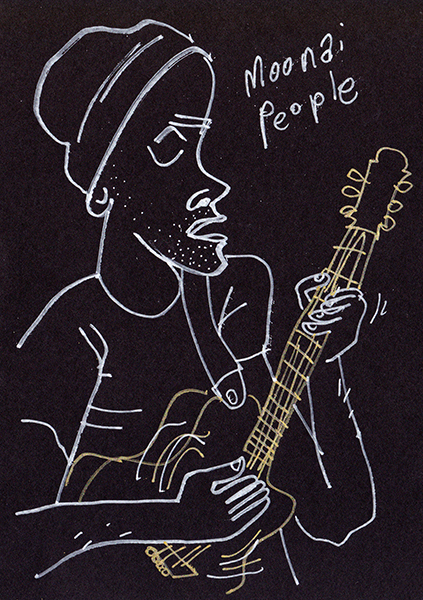 Moonai
People